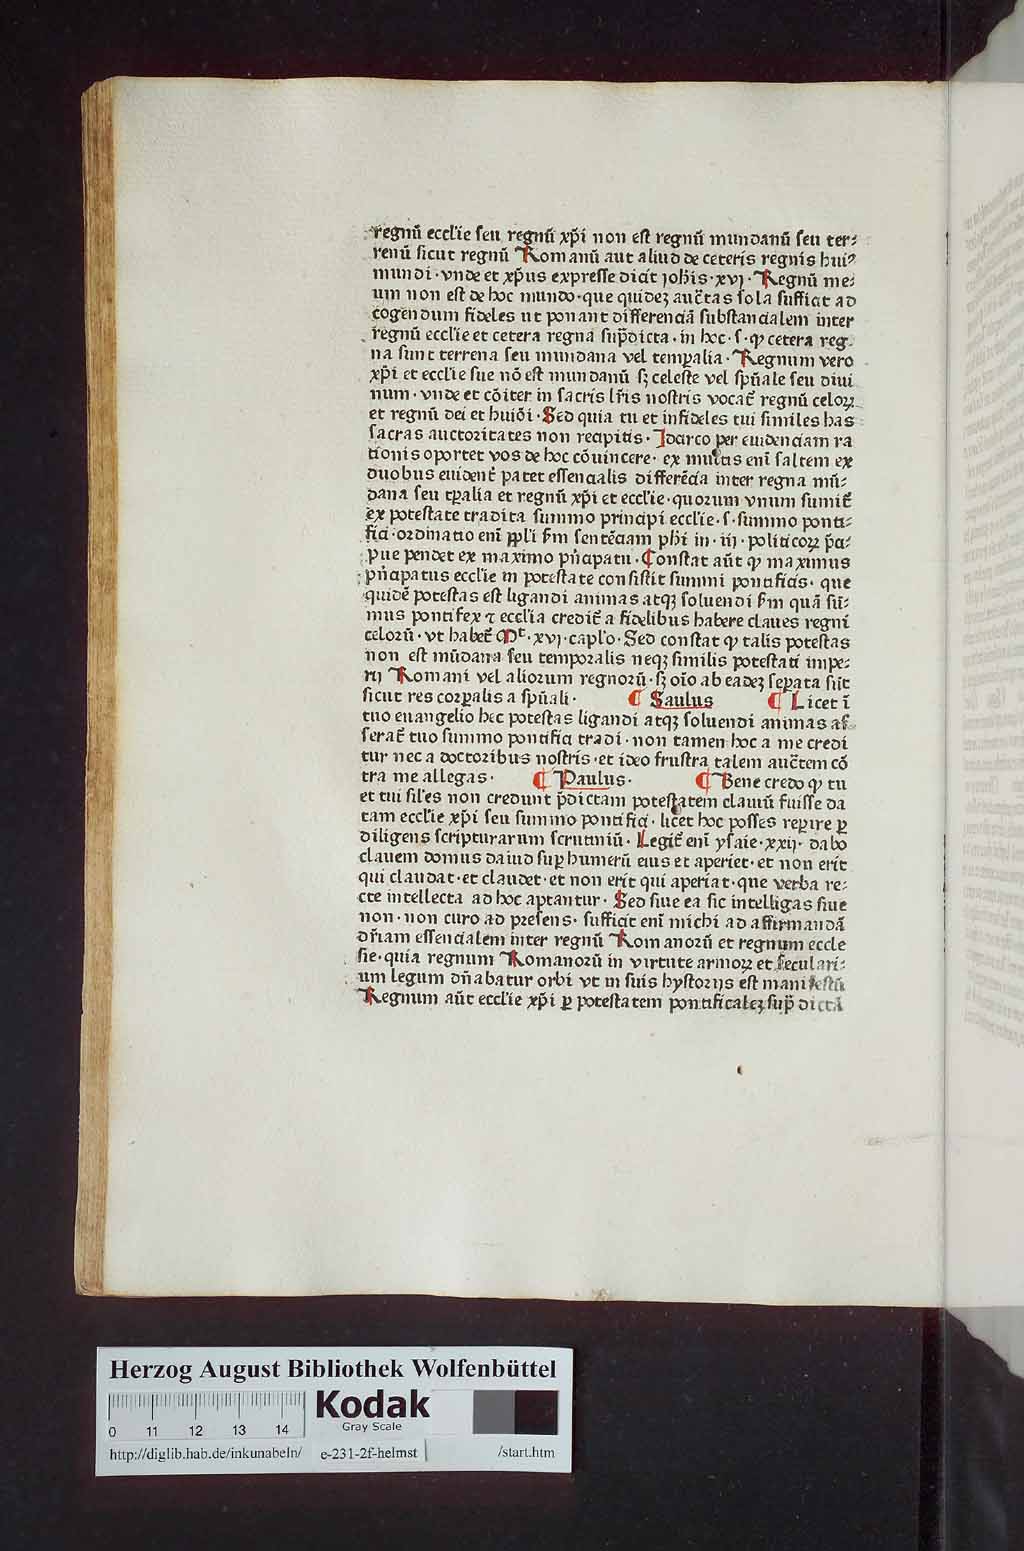 regnū ecclīe seu regnū xp̄i non est regnū mundanū seu ter⸗
renū sicut regnū Romanū aut aliud de ceteris regnis huiꝰ
mundi · vnde et xp̄us expresse dicit joh̄is · xvj · Regnū me⸗
um non est de hoc mundo · que quidez auc̄tas sola sufficit ad
cogendum fideles ut ponant differenciā substancialem inter
regnū ecclīe et cetera regna sup̄dicta · in hoc · s · ꝙ cetera reg⸗
na sunt terrena seu mundana vel temꝑalia · Regnum vero
xp̄i et ecclīe sue nō est mundanū sꝫ celeste vel sp̄nale seu diui
num · vnde et cōiter in sacris lr̄is nostris vocat̄ regnū celoꝝ
et regnū dei et huiōi · Sed quia tu et infideles tui similes has
sacras auctoritates non recipitis · Idcirco per euidenciam ra
tionis oportet vos de hoc cōuincere · ex multis enī saltem ex
duobus euident̄ patet essencialis differēcia inter regna mū⸗
dana seu tꝑalia et regnū xp̄i et ecclīe · quorum vnum sumit̄
ex potestate tradita summo principi ecclīe · s · summo ponti⸗
fici · ordinatio enī ppl̄i scd̄m sentēciam ph̄i in · iij · politicoꝝ p̄ci⸗
pue pendet ex maximo pn̄cipatu · Constat aūt ꝙ maximus
pn̄cipatus ecclīe in potestate consistit summi pontificis · que
quidē potestas est ligandi animas atqꝫ soluendi scd̄m quā sū⸗
mus pontifex ⁊ ecclīa credit̄ a fidelibus habere claues regni
celorū · vt habet̄ Mᵗ · xvj · capl̄o · Sed constat ꝙ talis potestas
non est mūdana seu temporalis neqꝫ similis potestati impe⸗
rij Romani vel aliorum regnorū · sꝫ oīo ab eadeꝫ seꝑata sūt
sicut res corꝑalis a sp̄nali · ¶ Saulus ¶ Licet ī
tuo euangelio hec potestas ligandi atqꝫ soluendi animas as⸗
serat̄ tuo summo pontifici tradi · non tamen hoc a me credi
tur nec a doctoribus nostris · et ideo frustra talem auc̄tem cō
tra me allegas · ¶ Paulus · ¶ Bene credo ꝙ tu
et tui sil̄es non credunt p̄dictam potestatem clauiū fuisse da
tam ecclīe xp̄i seu summo pontifici · licet hoc posses reꝑire ꝑ
diligens scripturarum scrutiniū · Legit̄ enī ysaie · xxij · dabo
clauem domus dauid suꝑ humerū eius et aperiet · et non erit
qui claudat · et claudet · et non erit qui aperiat · que verba re⸗
cte intellecta ad hoc aptantur · Sed siue ea sic intelligas siue
non · non curo ad presens · sufficit enī michi ad affirmandā
dr̄iam essencialem inter regnū Romanorū et regnum eccle
sie · quia regnum Romanorū in virtute armoꝝ et seculari⸗
um legum dn̄abatur orbi vt in suis hystorijs est manifestū
Regnum aūt ecclīe xp̄i ꝑ potestatem pontificaleꝫ sup̄ dictā
Herzog August Bibliothek Wolfenbüttel
Kodak
Gray Scale
0 11 12 13 14
http://diglib.hab.de/inkunabeln/ e-231-2f-helmst /start.htm